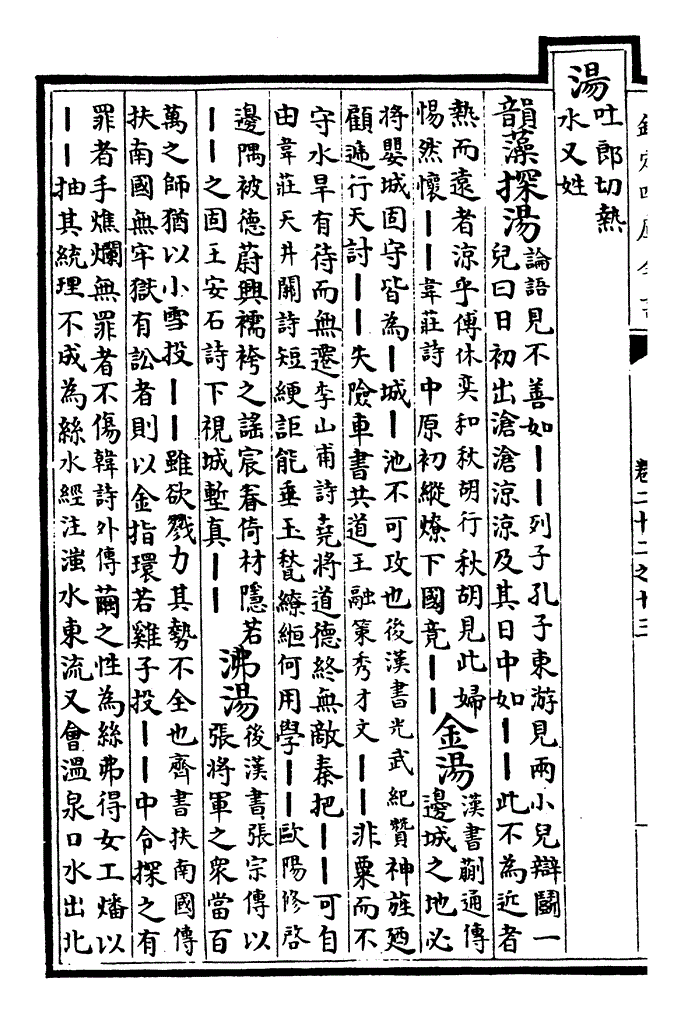 欽定四庫全書
卷二十二之十三
湯
吐郎切熱
水又姓
韻藻探湯
論語見不善如丨丨列子孔子東游見兩小兒辯鬭一
兒曰日初出滄滄涼涼及其日中如丨丨此不為近者
熱而遠者涼乎傅休奕和秋胡行秋胡見此婦
惕然懷丨丨韋莊詩中原初縱燎下國竟丨丨
金湯
漢書蒯通傳
邊城之地必
將嬰城固守皆為丨城丨池不可攻也後漢書光武紀贊神旌廼
顧遞行天討丨丨失險車書共道王融策秀才文丨丨非粟而不
守水旱有待而無遷李山甫詩堯將道德終無敵秦把丨丨可自
由韋莊天井關詩短綆詎能垂玉甃繚絙何用學丨丨歐陽修啓
邊隅被德蔚興襦袴之謡宸眷倚材隱若
丨丨之固王安石詩下視城塹真丨丨
沸湯
後漢書張宗傳以
張將軍之衆當百
萬之師猶以小雪投丨丨雖欲戮力其勢不全也齊書扶南國傳
扶南國無牢獄有訟者則以金指環若雞子投丨丨中令探之有
罪者手燋爛無罪者不傷韓詩外傳繭之性為絲弗得女工燔以
丨丨抽其統理不成為絲水經注滍水東流又會溫泉口水出北